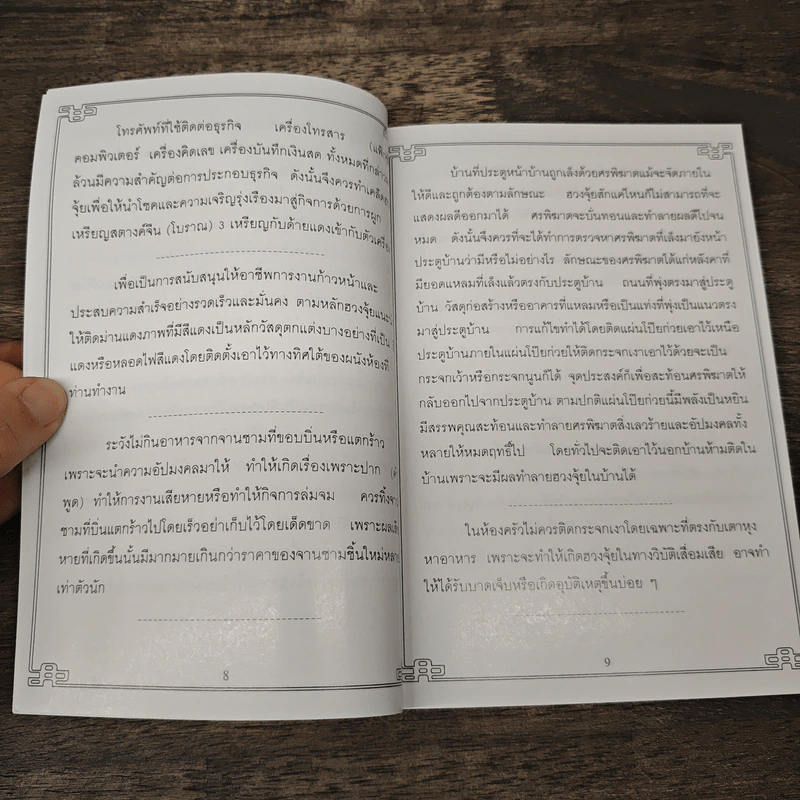 โทรศัพท์ที่ใช้ติดต่อธุรกิจ เครื่องโทรสาร
คอมพิวเตอร์ เครื่องคิดเลข เครื่องบันทึกเงินสด ทั้งหมดที่กล่าว
ล้วนมีความสำคัญต่อการประกอบธุรกิจ ดังนั้นจึงควรทำเคล็ด
จุ้ยเพื่อให้นำโชคและความเจริญรุ่งเรืองมาสู่กิจการด้วยการผูก
เหรียญสตางค์จีน (โบราณ) 3 เหรียญกับด้ายแดงเข้ากับตัวเครื่อง
เพื่อเป็นการสนับสนุนให้อาชีพการงานก้าวหน้าและ
ประสบความสำเร็จอย่างรวดเร็วและมั่นคง ตามหลักฮวงจุ้ยแนะ
ให้ติดม่านแดงภาพที่มีสีแดงเป็นหลักวัสดุตกแต่งบางอย่างที่เป็น
แดงหรือหลอดไฟสีแดงโดยติดตั้งเอาไว้ทางทิศใต้ของผนังห้องที่
ท่านทำงาน
ระวังไม่กินอาหารจากจานชามที่ขอบบิ่นหรือแตกร้าว
เพราะจะนำความอัปมงคลมาให้ ทำให้เกิดเรื่องเพราะปาก
พูด) ทำให้การงานเสียหายหรือทำให้กิจการล่มจม ควรทิ้ง
ชามที่บิ่นแตกร้าวไปโดยเร็วอย่าเก็บไว้โดยเด็ดขาด เพราะผล
หายที่เกิดขึ้นนั้นมีมากมายเกินกว่าราคาของจานชามชิ้นใหม่
เท่าตัวนัก
8
บ้านที่ประตูหน้าบ้านถูกเล็งด้วยศรพิฆาตแม้จะจัดภายใน
ให้ดีและถูกต้องตามลักษณะ ฮวงจุ้ยสักแค่ไหนก็ไม่สามารถที่จะ
แสดงผลดีออกมาได้ ศรพิฆาตจะบั่นทอนและทำลายผลดีไปจน
หมด ดังนั้นจึงควรที่จะได้ทำการตรวจหาศรพิฆาตที่เล็งมายังหน้า
ประตูบ้านว่ามีหรือไม่อย่างไร ลักษณะของศรพิฆาตได้แก่หลังคาที่
มียอดแหลมที่เล็งแล้วตรงกับประตูบ้าน ถนนที่พุ่งตรงมาสู่ประตู
บ้าน วัสดุก่อสร้างหรืออาคารที่แหลมหรือเป็นแท่งที่พุ่งเป็นแนวตรง
มาสู่ประตูบ้าน การแก้ไขทำได้โดยติดแผ่นโป๊ยก่วยเอาไว้เหนือ
ประตูบ้านภายในแผ่นโป๊ยก่วยให้ติดกระจกเงาเอาไว้ด้วยจะเป็น
กระจกเว้าหรือกระจกนูนก็ได้ จุดประสงค์ก็เพื่อสะท้อนศรพิฆาตให้
กลับออกไปจากประตูบ้าน ตามปกติแผ่นโป๊ยก่วยนี้มีพลังเป็นหยิน
มีสรรพคุณสะท้อนและทำลายศรพิฆาตสิ่งเลวร้ายและอัปมงคลทั้ง
หลายให้หมดฤทธิ์ไป โดยทั่วไปจะติดเอาไว้นอกบ้านห้ามติดใน
บ้านเพราะจะมีผลทำลายฮวงจุ้ยในบ้านได้
ในห้องครัวไม่ควรติดกระจกเงาโดยเฉพาะที่ตรงกับเตาหุง
หาอาหาร เพราะจะทำให้เกิดฮวงจุ้ยในทางวิบัติเสื่อมเสีย อาจทำ
ให้ได้รับบาดเจ็บหรือเกิดอุบัติเหตุขึ้นบ่อย ๆ
9